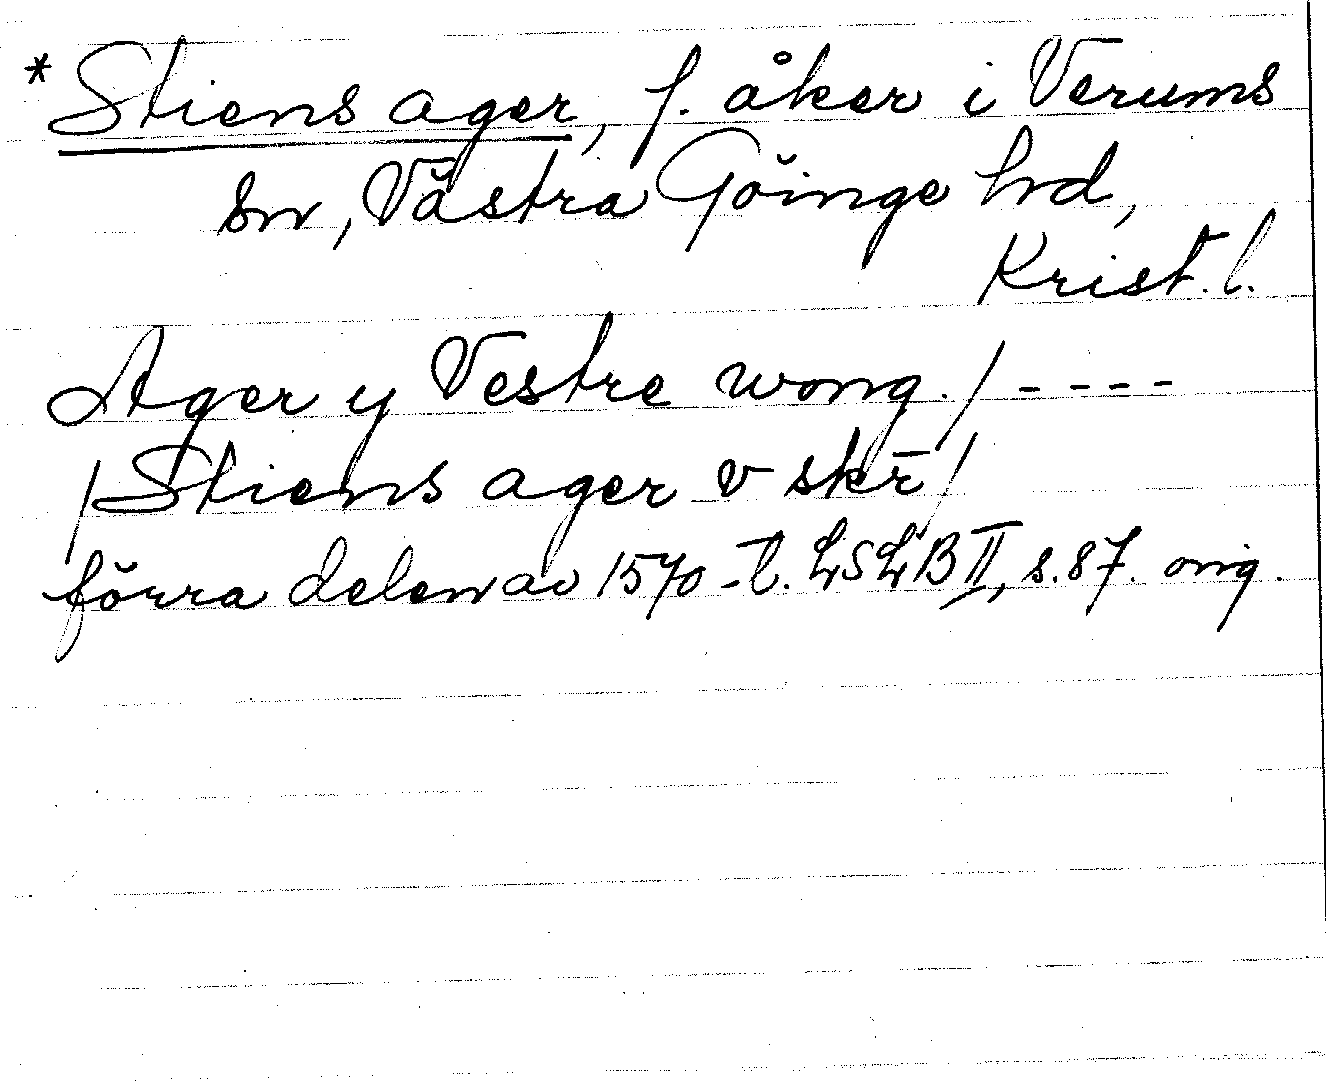 *Stiens ager, f. åker i Verums
sn, Västra Göinge hd,
Krist. l.
Ager y Vestre wong. / - - - -
/ Stiens ager v skr̄ /
förra delen av 1570-t. LSLB II, s. 87. orig.